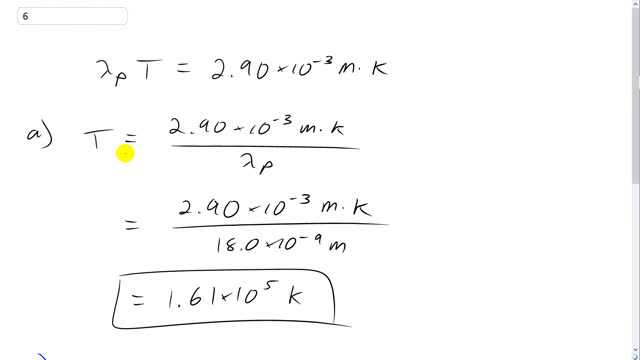 6
λp T = 2.90×10⁻³ m·K
a) T = 2.90×10⁻³ m·K / λp
= 2.90×10⁻³ m·K / 18.0×10⁻⁹ m
= 1.61×10⁵ K